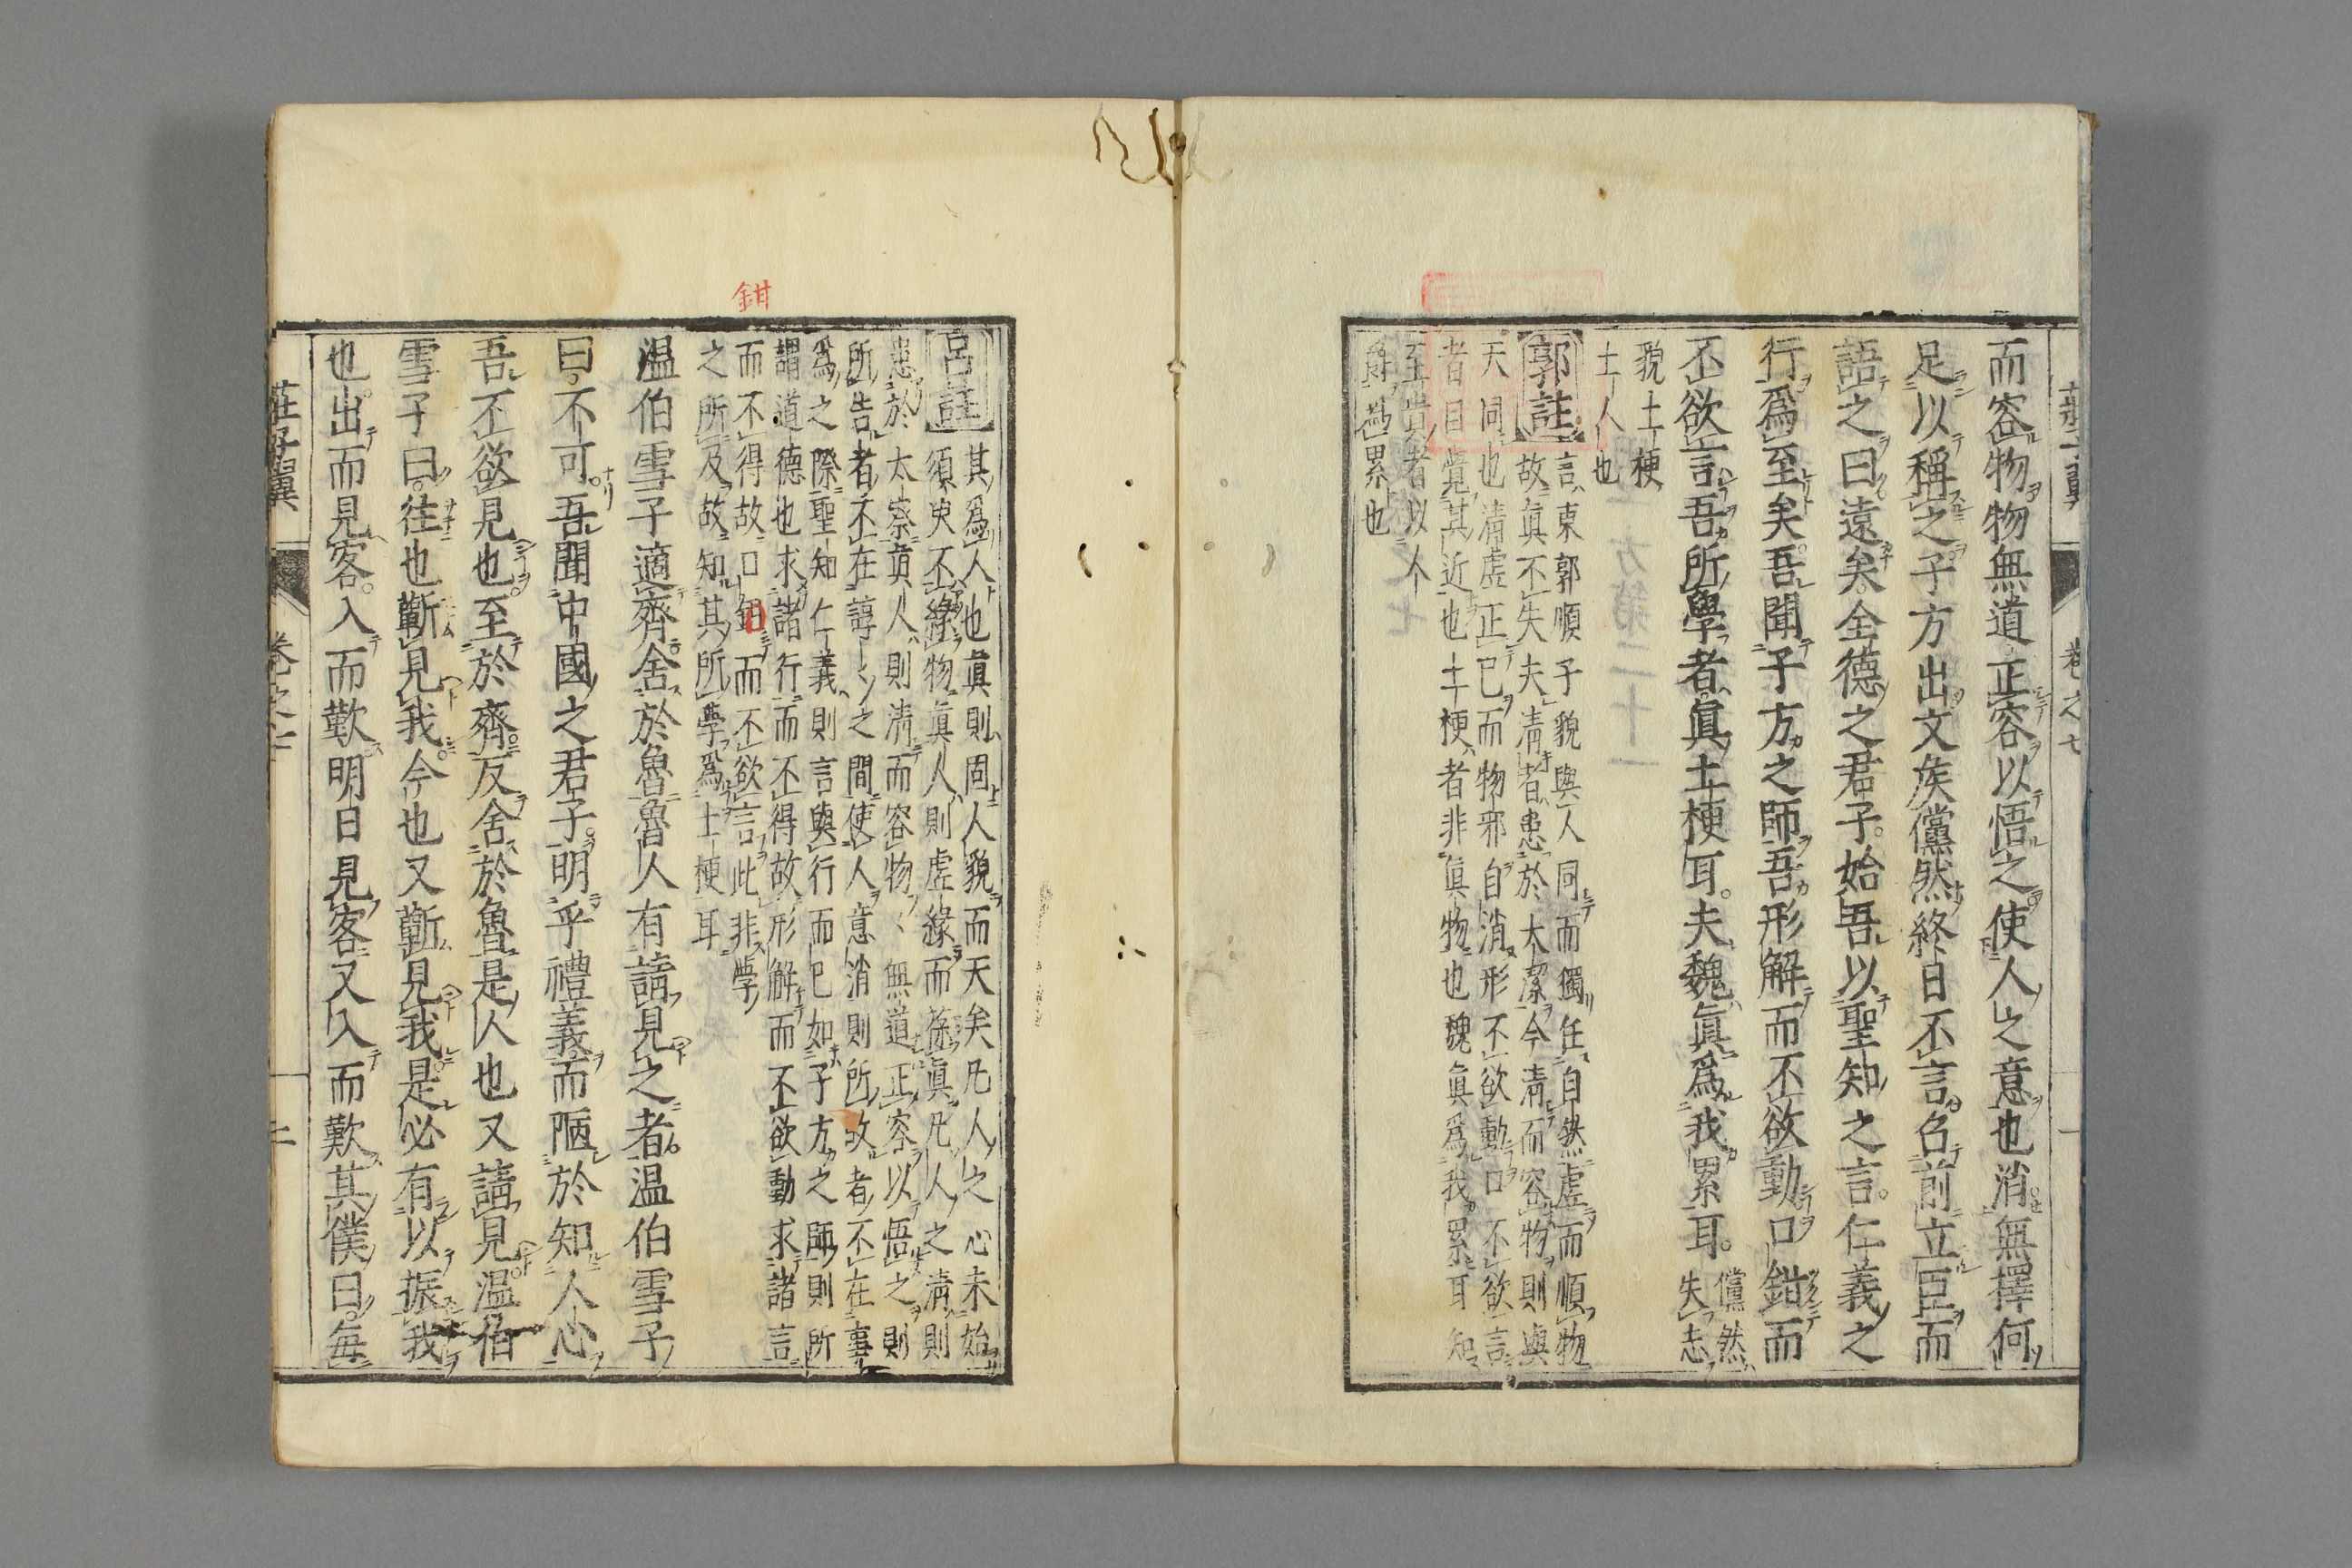 而容物物無道正容以悟之使人之意也消無擇何
足以稱之子方出文矦儻然終日不言召前立臣而
語之曰遠矣全德之君子始吾以聖知之言仁義之
行爲至矣吾聞子方之師吾形解而不欲動口鉗而
不欲言吾所學者眞土梗耳夫魏眞爲我累耳 儻然
失志
貌土梗
土人也
郭註 言東郭順子貌與人同而獨任自然虛而順物
故眞不失夫淸者患於太潔今淸而容物則與
天同也淸虛正己而物邪自消形不欲動口不欲言
者自覺其近也土梗者非眞物也魏眞爲我累耳知
至貴者以人
爵爲累也
呂註 其爲人也眞則固人貌而天矣凡人之心未始
須臾不緣物眞人則虛緣而葆眞凡人之淸則
患於太察眞人則淸而容物物無道正容以悟之則
所告者不在諄諄之間使人意消則所改者不在事
爲之際聖知仁義則言與行而已如子方之師則所
謂道德也求諸行而不得故形解而不欲動求諸言
而不得故口鉗而不欲言此非學
之所及故知其所學爲土梗耳
鉗
溫伯雪子適齊舍於魯魯人有請見之者溫伯雪子
曰不可吾聞中國之君子明乎禮義而陋於知人心
吾不欲見也至於齊反舍於魯是人也又請見溫伯
雪子曰往也蘄見我今也又蘄見我是必有以振我
也出而見客入而歎明日見客又入而歎其僕曰每
莊子翼 卷之七 二